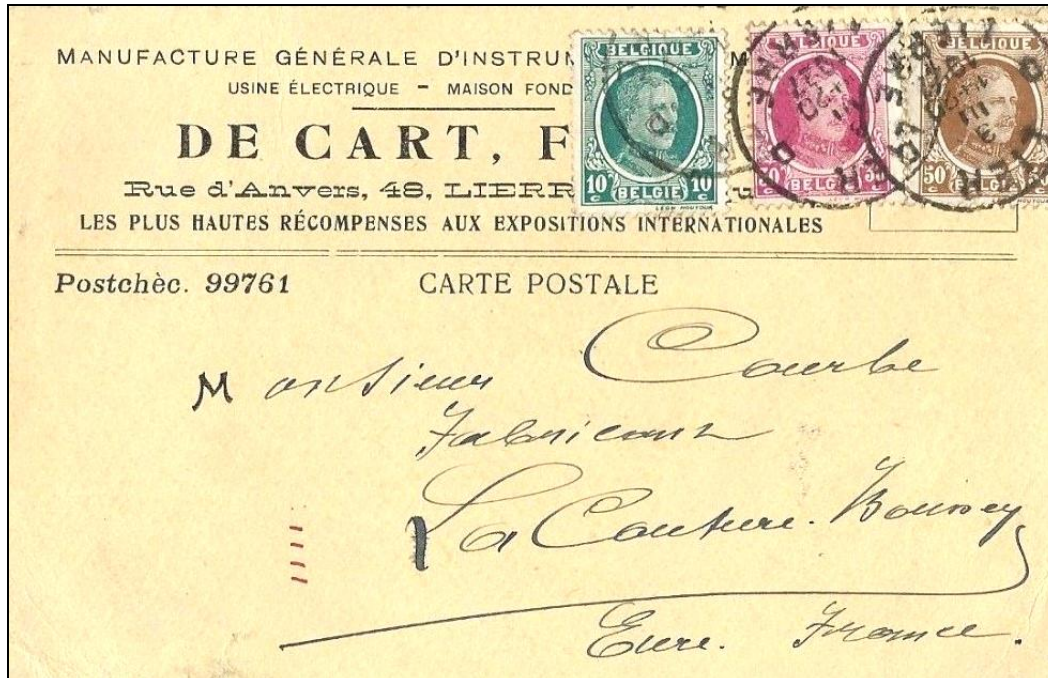 MANUFACTURE GÉNÉRALE D'INSTRUM M
USINE ÉLECTRIQUE – MAISON FOND
DE CART, F
Rue d'Anvers, 48, LIERR
LES PLUS HAUTES RÉCOMPENSES AUX EXPOSITIONS INTERNATIONALES
BELGIQUE
10c BELGIE 10c
LEON HOUYOUX
BELGIQUE
BELGIE
BELGIQUE
50c BELGIE
Postchèc. 99761 CARTE POSTALE
Monsieur Courbe
Fabricant
La Couture-Boussey
Eure. France.